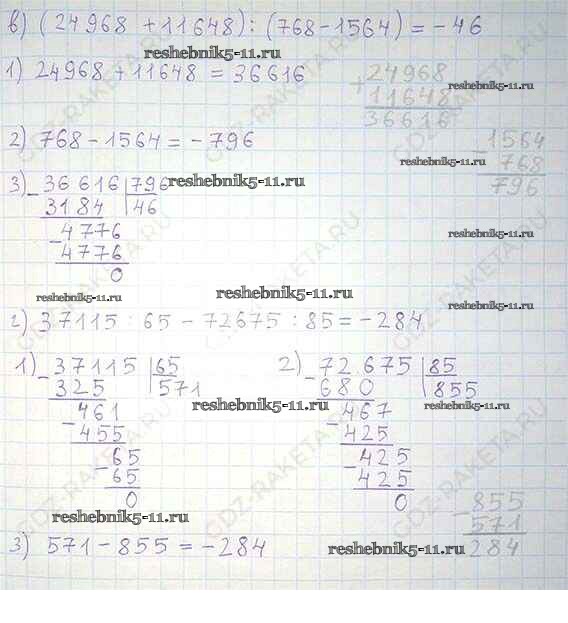 в) (24968 + 11648) : (768 - 1564) = - 46
reshebnik5-11.ru
1) 24968 + 11648 = 36616
+ 24968
11648
36616
reshebnik5-11.ru
2) 768 - 1564 = - 796
- 1564
768
796
reshebnik5-11.ru
3) - 36 616 | 796
3184 | 46
- 4776
4776
0
reshebnik5-11.ru
reshebnik5-11.ru
reshebnik5-11.ru
reshebnik5-11.ru
г) 37115 : 65 - 72675 : 85 = - 284
1) - 37115 | 65
325 | 571
- 461
455
- 65
65
0
2) - 72.675 | 85
680 | 855
- 467
425
- 425
425
0
reshebnik5-11.ru
reshebnik5-11.ru
reshebnik5-11.ru
reshebnik5-11.ru
- 855
571
284
3) 571 - 855 = - 284
GDZ-RAKETA.RU
GDZ-RAKETA.RU
GDZ-RAKETA.RU
GDZ-RAKETA.RU
GDZ-RAKETA.RU
GDZ-RAKETA.RU